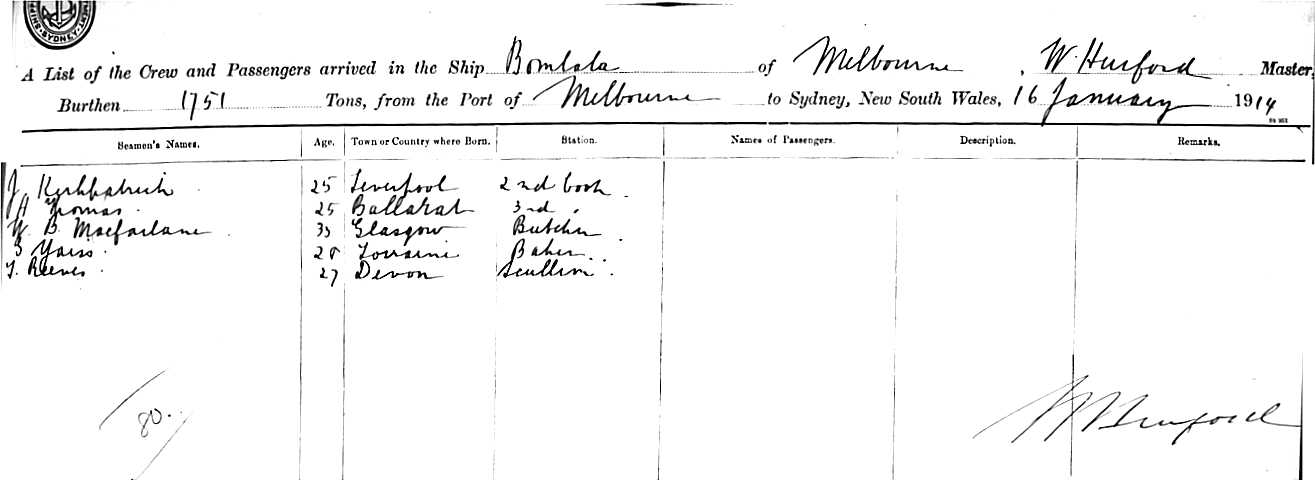 SYDNEY
A List of the Crew and Passengers arrived in the Ship Bombala of Melbourne, W. Hurford Master,
Burthen 1751 Tons, from the Port of Melbourne to Sydney, New South Wales, 16 January 1914
Seamen's Names. Age. Town or Country where Born. Station. Names of Passengers. Description. Remarks.
J Kirkpatrick 25 Liverpool 2nd Cook
A Thomas 25 Ballarat 3rd "
W. B. Macfarlane 33 Glasgow Butcher
28 Lorraine Baker
T. Reeves 27 Devon Scullion
80.
W Hurford